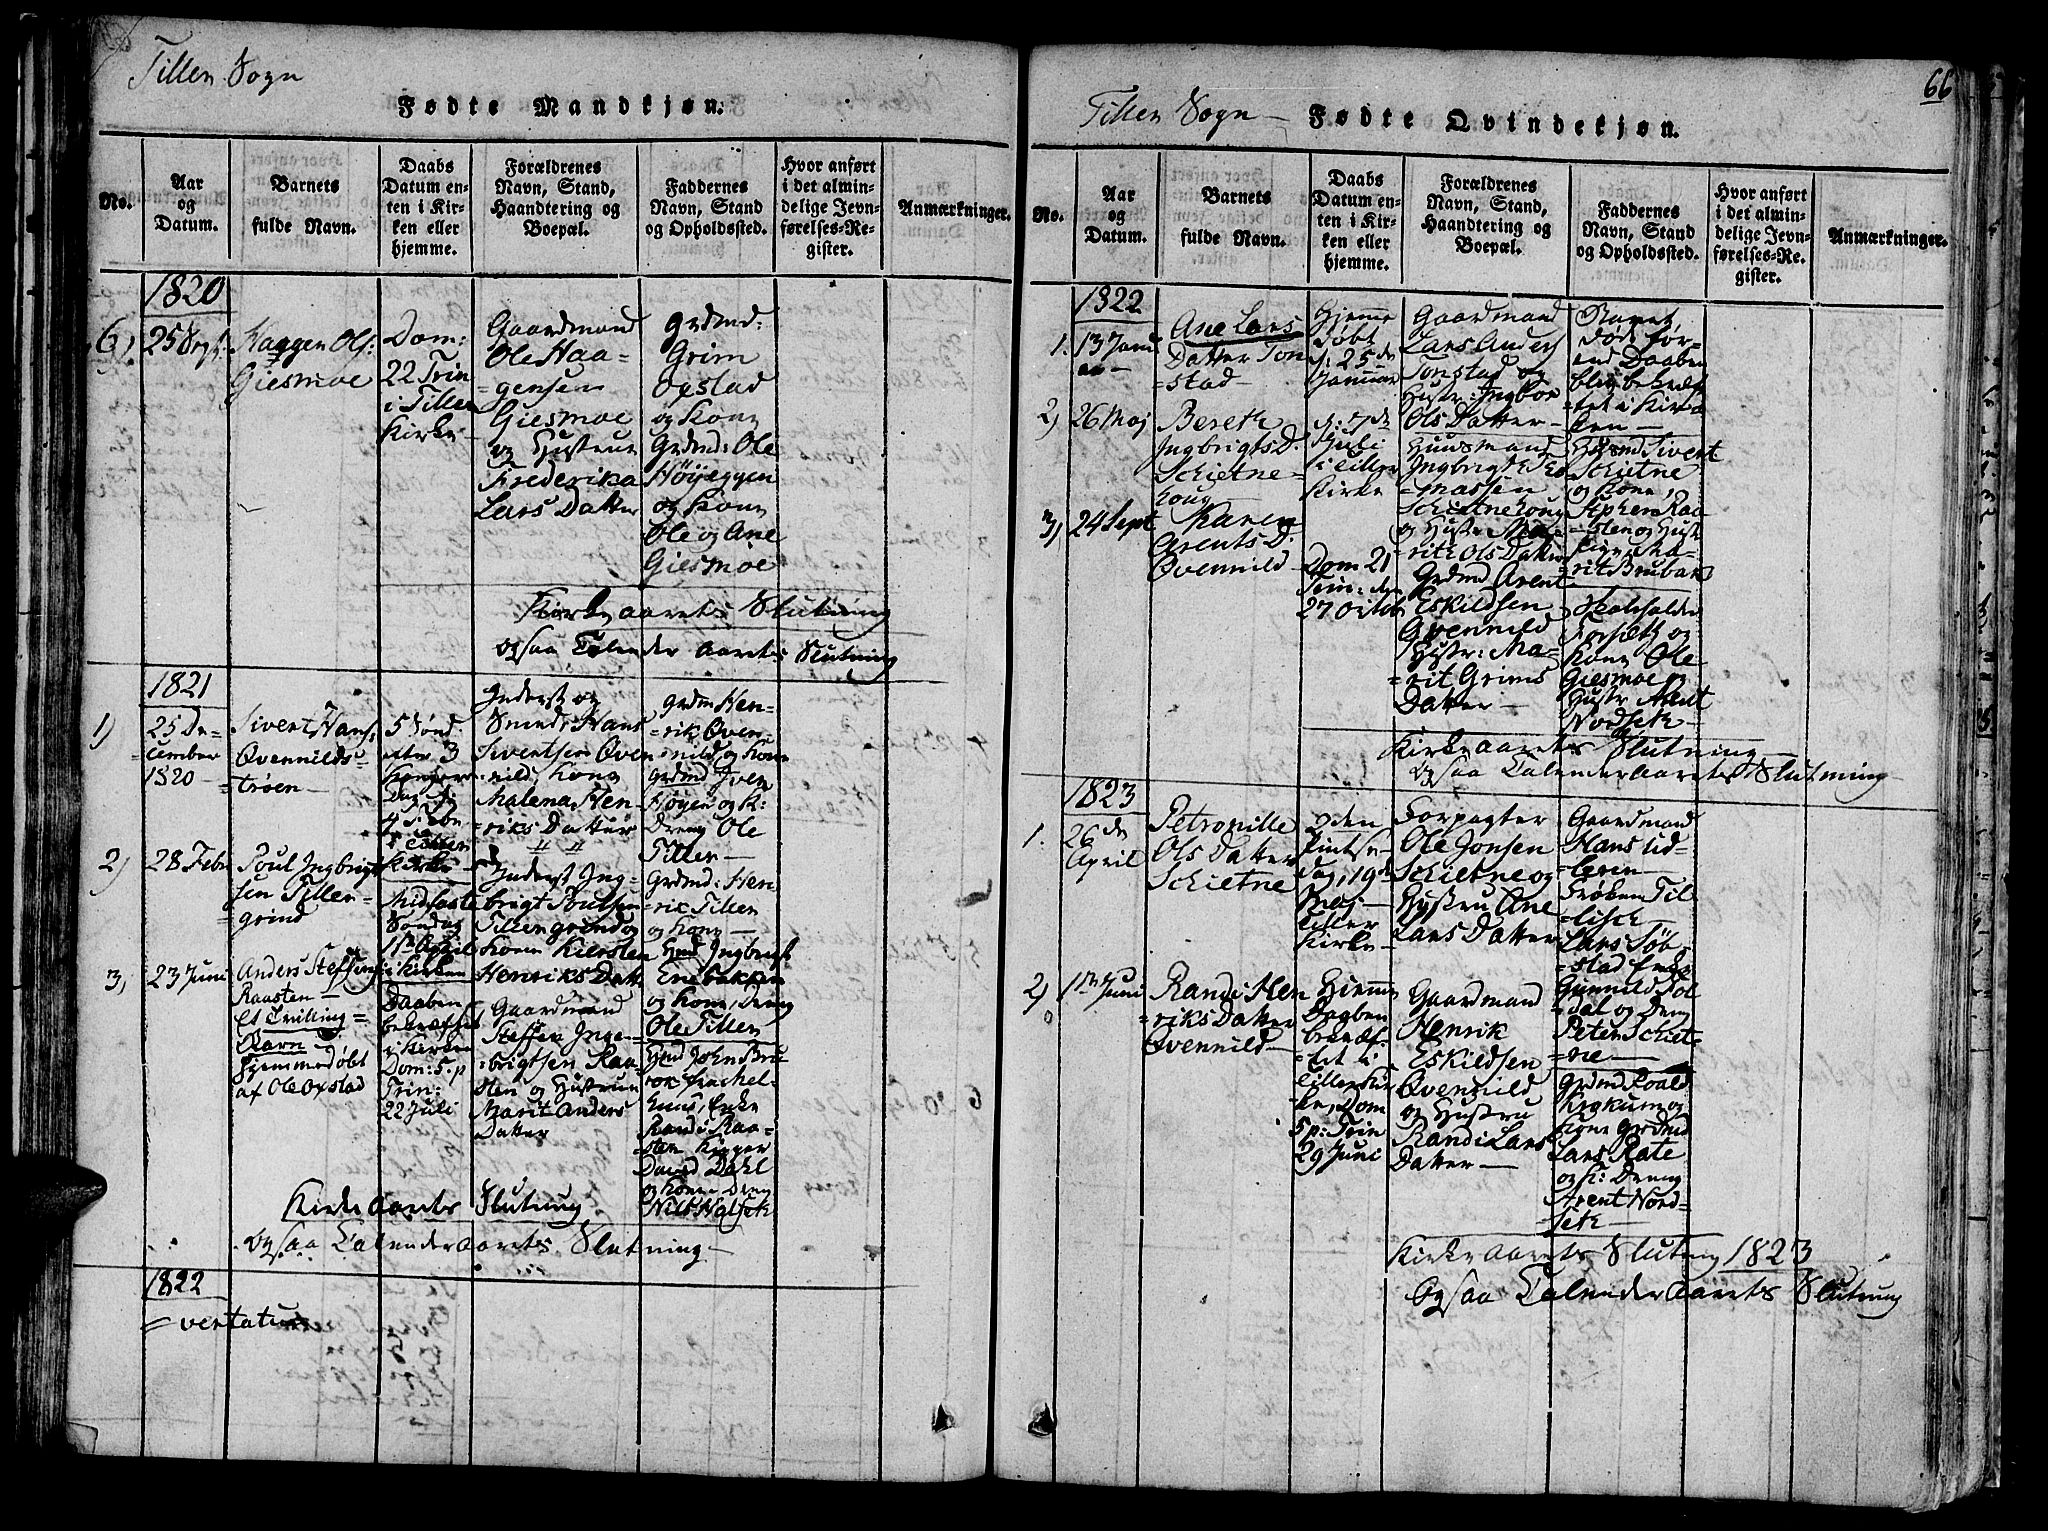 Tillen Sogn
Fødte Mandkjøn.
No.
Aar
og
Datum.
Barnets
fulde Navn.
Daabs
Datum en-
ten i Kir-
ken eller
hjemme.
Forældrenes
Navn, Stand,
Haandtering og
Boepæl.
Faddernes
Navn, Stand
og Opholdssted.
Hvor anført
i det almin-
delige Jevn-
førelses-Re-
gister.
Anmærkninger.
1820
6)
25 Sept:
Haagen Ols:
Giesmoe
Dom:
22 Trin
i Tiller
Kirke
Gaardmand
Ole Haa-
gensen
Giesmoe
og Hustrue
Frederika
Lars Datter
Grdmd:
Grim
Oxstad
og Kone
Grdmd: Ole
Høyeggen
og Kone
Ole og Ane
Giesmoe
Kirke aarets Slutning
ogsaa Calender aarets Slutning
1821
1)
25 De-
cember
1820
Sivert Hans:
Qvenilds-
trøen
5 Sønd
efter 3
Konger
Dag d.
4 Febr
i Tiller
Kirke
Inderst og
Smed, Hans
Sivertsen Qven-
nild, Kone
Malena Hen-
riks Datter
Grdmd Hen-
rik Qven-
nild og Kone
Grdmd Iver
Høyen og K:
Dreng Ole
Tiller
2)
28 Febr
Poul Ingbrigt
sen Tiller-
grind
Midfaste
Søndag
1te April
i Kirken
Inderst Ing-
brigt Poulsen
Tillergrind og
Kone Kiersten
Henriks Datt
Grdmd: Hen-
ric Tiller
og Kone
Hmd Ingbrigt
Enesbakken
og Kone, Dreng
Ole Tiller
3,
23 Juni
Anders Steffens
Raasten
Et Tvilling-
Barn
Hjemmedøbt
af Ole Oxstad
Daaben
bekræftet
i Kirken
Dom: 5 p
Trin:
22 Juli
Gaardmand
Steffen Inge-
brigtsen Raa-
sten og Hustrue
Marit Anders
Datter
Hmd John Bru-
rok
Enke
Randi Raa-
sten
David Dahl
og Kone Dreng
Nils
Kirke Aarets Slutning
ogsaa Calender aarets Slutning
1822
vertatur
66
Tillen Sogn
Fødte Qvindekjøn.
No.
Aar
og
Datum.
Barnets
fulde Navn.
Daabs
Datum en-
ten i Kir-
ken eller
hjemme.
Forældrenes
Navn, Stand,
Haandtering og
Boepæl.
Faddernes
Navn, Stand
og Opholdssted.
Hvor anført
i det almin-
delige Jevn-
førelses-Re-
gister.
Anmærkninger.
1822
1.
13 Janu
ar
Ane Lars
Datter Ton
stad
Hjemme
døbt
d. 25de
Januar
Gaardmand
Lars Anders
Tonstad og
Hustr: Ingbor
Ols Datter
Barnet
døde før-
end Daaben
blev bekræf-
tet i Kir-
ken
2)
26 Maj
Bereth
Ingbrigts D.
Schietne-
houg
d: 7de
Juli
i Tiller
Kirke
Huusmand
Ingbrigt Tho
massen
Schietnehoug
og Hustr: Ma-
rith Ols Datter
Husmd Sivert
Schietne
og Kone,
Stephen Raa-
sten og Hust
Pige Ma-
rit Brubak
3)
24 Sept
Karen
Arents D.
Qvennild
Dom 21
Trin: den
27 Octob
Grdmd Arent
Eskildsen
Qvennild
Hustr: Ma-
rit Grims
Datter
Forseth og
Kone Ole
Giesmoe og
Hustr
Nordseth
Kirke aarets Slutning
ogsaa Calender Aarets Slutning
1823
1.
26de
April
Petronille
Ols Datter
Schietne
2den
Pintse-
dag, 19de
Maj
Tiller
Kirke
Forpagter
Ole Jonsen
Schietne og
Hustru Ane
Lars Datter
Gaardmand
Hans Ud-
leren
Frøken Til-
lisch
Lars Søb-
stad Enke
Gunnild
dal og Dreng
Peter Schiet-
ne
2)
1te Juni
Randi Hen
riks Datter
Qvennild
Hjemme
Daaben
bekræf-
tet i
Tiller Kir
ke, Dom
5 p: Trin
29 Juni
Gaardmand
Henrik
Eskildsen
Qvennild
og Hustru
Randi Lars
Datter
Grdmd Roald
Krokum og
Kone Grdmd
Lars Rate
og K: Dreng
Arent Nord-
seth
Kirke aarets Slutning 1823
Ogsaa Calender Aarets Slutning